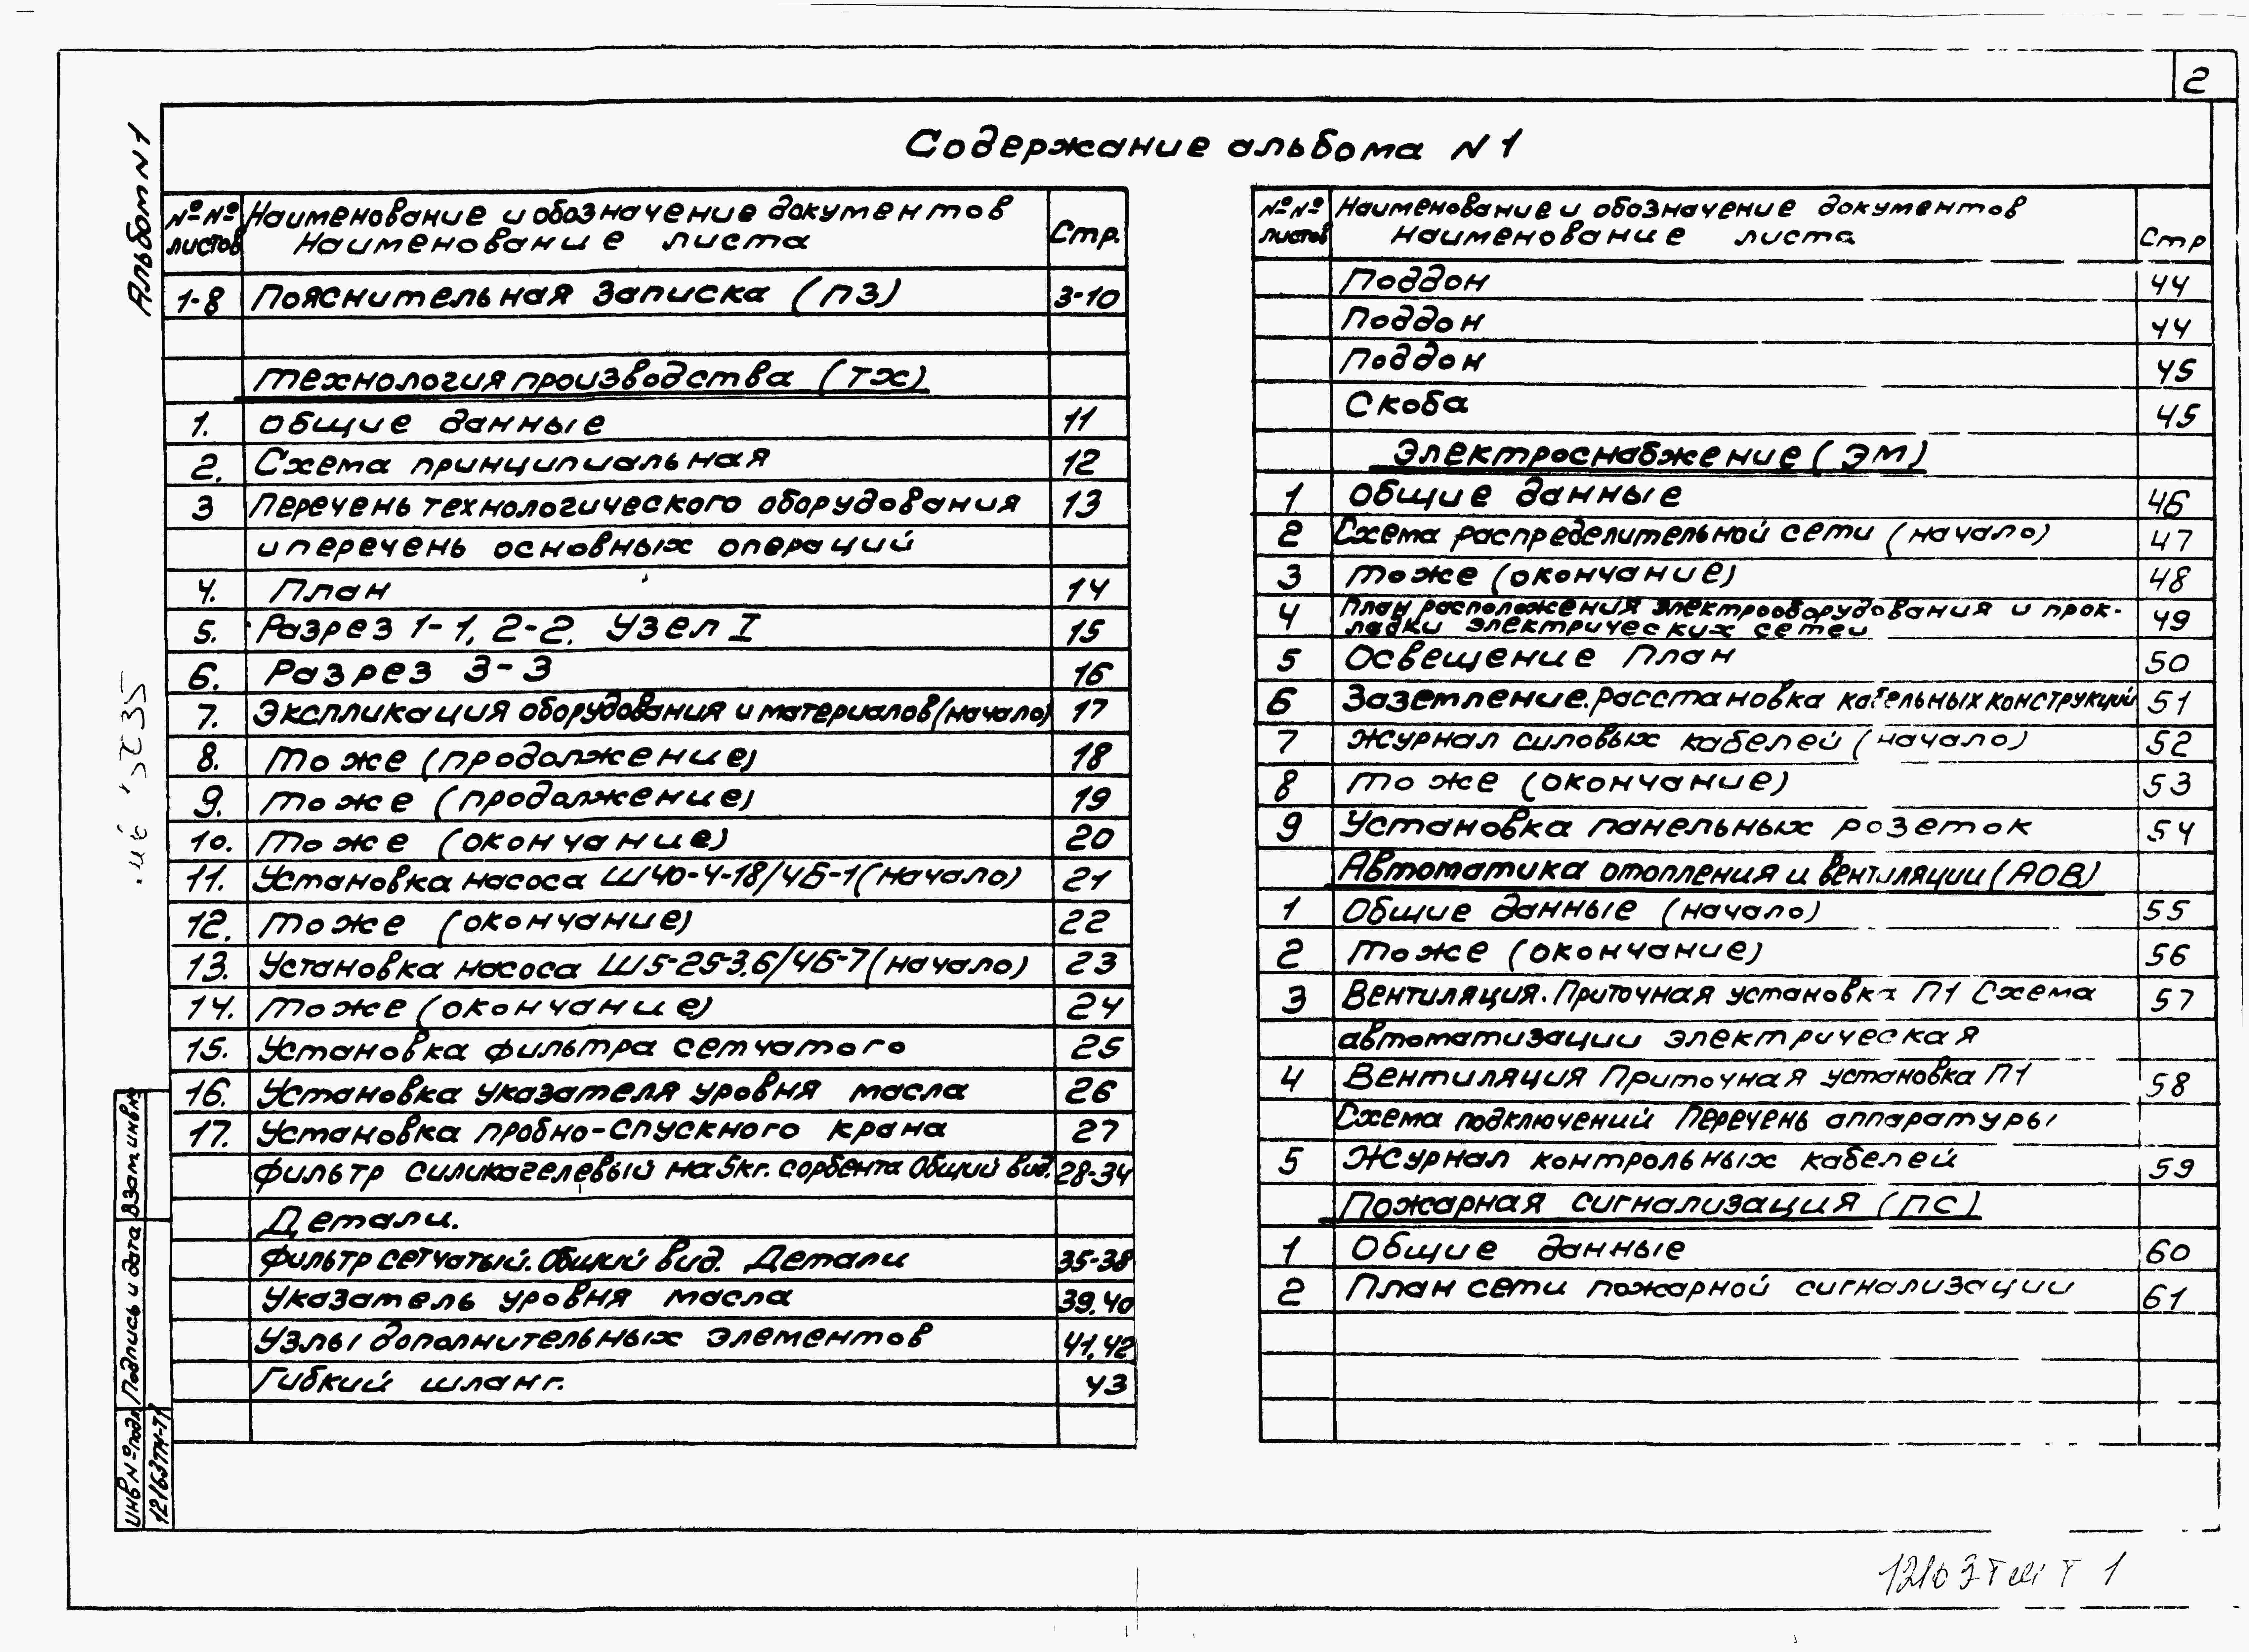 2
Альбом N1
Содержание альбома N1
№№ листов Наименование и обозначение документов Наименование листа Стр.
1-8 Пояснительная записка (ПЗ) 3-10
Технология производства (ТХ)
1. Общие данные 11
2. Схема принципиальная 12
3 Перечень технологического оборудования 13
и перечень основных операций
4. План 14
5. Разрез 1-1, 2-2. Узел I 15
6. Разрез 3-3 16
7. Экспликация оборудования и материалов (начало) 17
8. То же (продолжение) 18
9. То же (продолжение) 19
10. То же (окончание) 20
11. Установка насоса Ш40-4-18/4Б-1 (начало) 21
12. То же (окончание) 22
13. Установка насоса Ш5-25-3,6/4Б-7 (начало) 23
14. То же (окончание) 24
15. Установка фильтра сетчатого 25
16. Установка указателя уровня масла 26
17. Установка пробно-спускного крана 27
Фильтр силикагелевый на 5кг. сорбента Общий вид. 28-34
Детали.
Фильтр сетчатый. Общий вид. Детали 35-38
Указатель уровня масла 39,40
Узлы дополнительных элементов 41,42
Гибкий шланг. 43
№№ листов Наименование и обозначение документов Наименование листа Стр
Поддон 44
Поддон 44
Поддон 45
Скоба 45
Электроснабжение (ЭМ)
1 Общие данные 46
2 Схема распределительной сети (начало) 47
3 То же (окончание) 48
4 План расположения электрооборудования и прок- 49
ладки электрических сетей
5 Освещение План 50
6 Заземление. Расстановка кабельных конструкций 51
7 Журнал силовых кабелей (начало) 52
8 То же (окончание) 53
9 Установка панельных розеток 54
Автоматика отопления и вентиляции (АОВ)
1 Общие данные (начало) 55
2 То же (окончание) 56
3 Вентиляция. Приточная установка П1 Схема 57
автоматизации электрическая
4 Вентиляция Приточная установка П1 58
Схема подключений Перечень аппаратуры
5 Журнал контрольных кабелей 59
Пожарная сигнализация (ПС)
1 Общие данные 60
2 План сети пожарной сигнализации 61
Взам инв №
Подпись и дата
Инв № подл
12163тм-т1